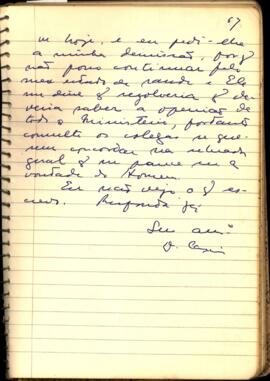 67
hoje, e eu pedi-lhe
a minha demissão, porq̃
não posso continuar pelo
meu estado de saude e Ele
me disse q̃ resolveria q̃ de
veria saber a opinião de
todo o Ministerio, portanto
consulte os colegas se que
rem concordar na retirada
geral q̃ me parece ser a
vontade do Homem.
Eu não vejo o q̃ es
crevo. Responda já
Seu amº